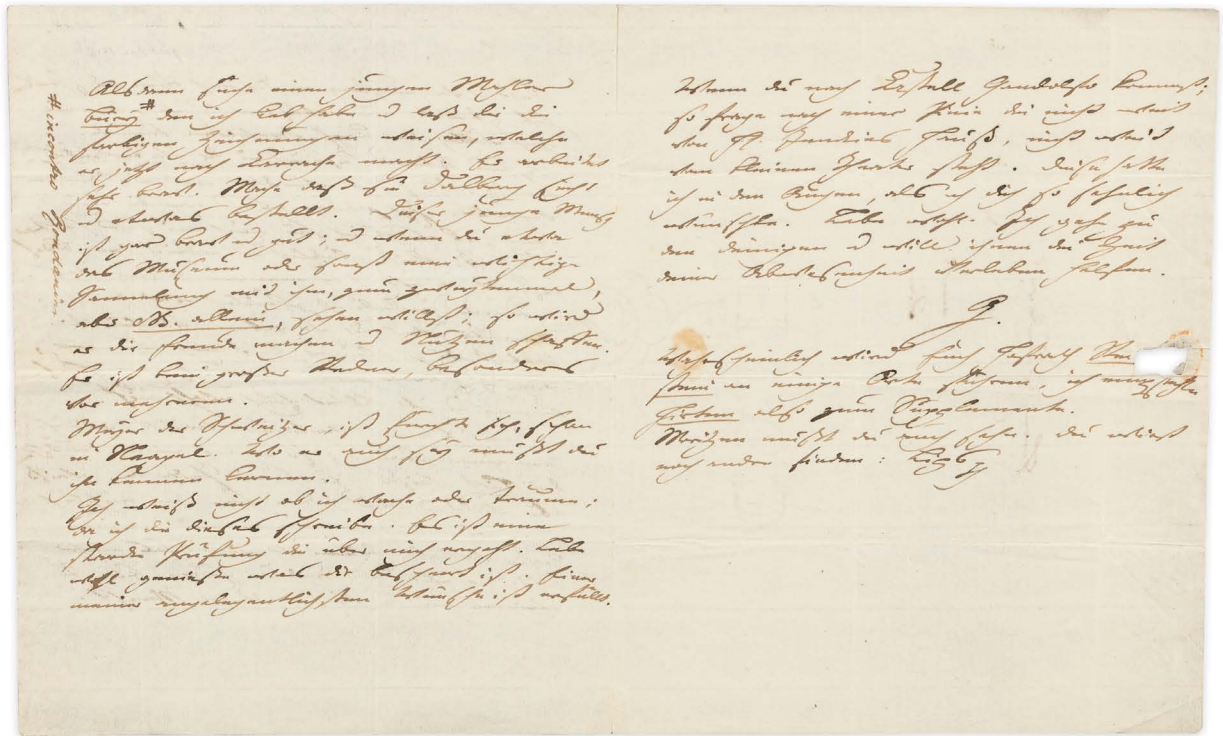 Alsdann suche einen jungen Mahler
Bury # den ich lieb habe u laß dir die
farbigen Zeichnungen weisen, welche
er jetzt nach Carrache macht. Er arbeitet
sehr brav. Mache daß sie Dalberg sieht
u etwas bestellt. Dieser junge Mensch
ist gar brav u gut; u wenn du etwa
das Museum oder sonst eine wichtige
Sammlung mit ihm, zum zweytenmal,
aber NB. allein, sehen willst; so wird
er dir Freude machen u Nutzen schaffen.
Er ist kein groser Redner, besonders
vor mehreren.
Meyer der Schweitzer, ist fürchte ich, schon
in Neapel. Wo er auch sey mußt du
ihn kennen lernen.
Ich weiß nicht ob ich wache oder träume;
da ich dir dieses schreibe. Es ist eine
starcke Prüfung die über mich ergeht. Lebe
wohl genieße was dir beschert ist. Einer
meiner angelegentlichsten Wünsche ist erfüllt.
# incontro Rondanini
Wenn du nach Castell Gandolfo kommst;
so frage nach einer Pinie die nicht weit
von H. Jenckins Hauß, nicht weit
vom kleinen Theater steht. Diese hatte
ich in den Augen, als ich dich so sehnlich
wünschte. Lebe wohl. Ich gehe zu
den deinigen u will ihnen die Zeit
deiner Abwesenheit verleben helfen.
G.
Wahrscheinlich wird Euch Hofrath
stein an einige Orte führen, ich empfehle
Hirten also zum Supplemente.
Moritzen mußt du auch sehn. Du wirst
noch andre finden: Lips pp